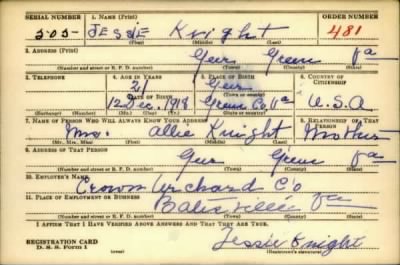 SERIAL NUMBER 1. NAME (Print) ORDER NUMBER
505 JESSIE Knight 481
(First) (Middle) (Last)
2. ADDRESS (Print)
Geer Green Va
(Number and street or R. F. D. number) (Town) (County) (State)
3. TELEPHONE 4. AGE IN YEARS 5. PLACE OF BIRTH 6. COUNTRY OF CITIZENSHIP
21 Geer
DATE OF BIRTH (Town or county)
12 Dec. 1918 Green Co Va U.S.A
(Exchange) (Number) (Mo.) (Day) (Yr.) (State or country)
7. NAME OF PERSON WHO WILL ALWAYS KNOW YOUR ADDRESS 8. RELATIONSHIP OF THAT PERSON
Mrs. Allie Knight Mother
(Mr., Mrs., Miss) (First) (Middle) (Last)
9. ADDRESS OF THAT PERSON
Geer Green Va
(Number and street or R. F. D. number) (Town) (County) (State)
10. EMPLOYER'S NAME
Crown Orchard Co
11. PLACE OF EMPLOYMENT OR BUSINESS
Batesville Va
(Number and street or R. F. D. number) (Town) (County) (State)
I AFFIRM THAT I HAVE VERIFIED ABOVE ANSWERS AND THAT THEY ARE TRUE.
REGISTRATION CARD
D. S. S. Form 1 Jessie Knight
(Registrant's signature)